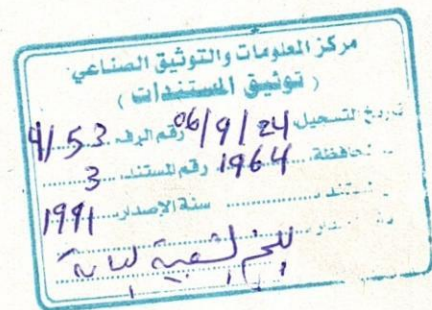 مركز المعلومات والتوثيق الصناعي
( توثيق المستندات )
تاريخ التسجيل 06/9/24 رقم الرف 9/53
المحافظة 1964 رقم المستند 3
المستند سنة الإصدار 1991
الشعبية